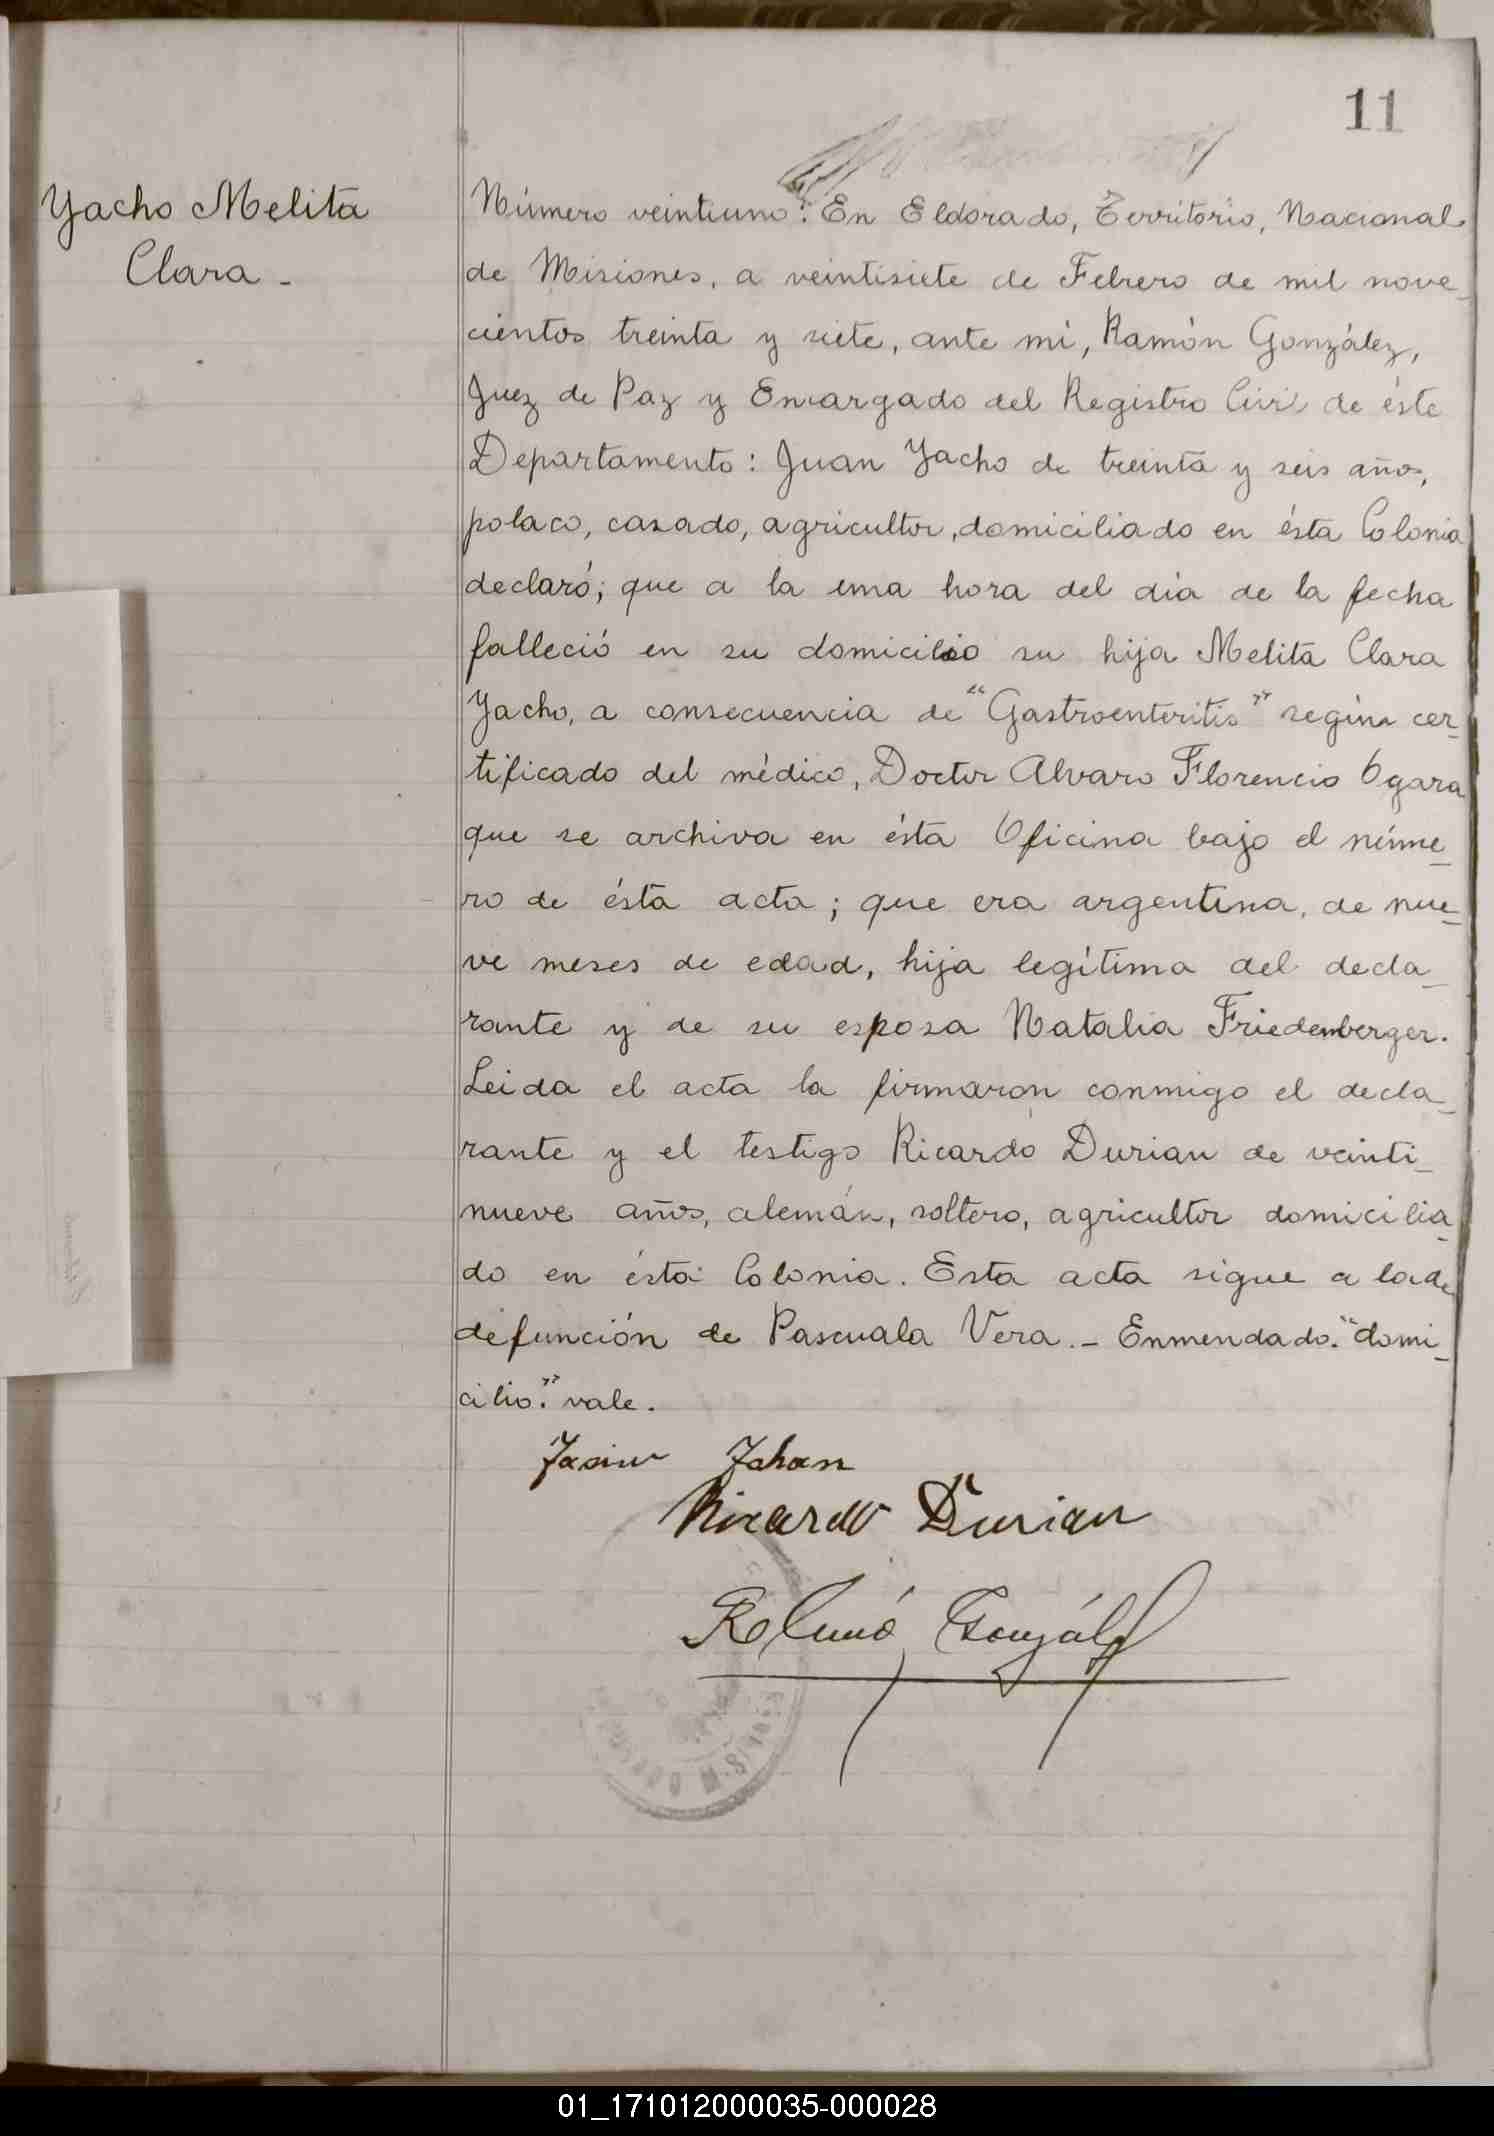 11
Yacho Melita
Clara -
Número veintiuno: En Eldorado, Territorio, Nacional
de Misiones, a veintisiete de Febrero de mil nove-
cientos treinta y siete, ante mí, Ramón González,
Juez de Paz y Encargado del Registro Civil de éste
Departamento: Juan Yacho de treinta y seis años,
polaco, casado, agricultor, domiciliado en ésta Colonia
declaró; que a la una hora del día de la fecha
falleció en su domicilio su hija Melita Clara
Yacho, a consecuencia de "Gastroenteritis" según cer-
tificado del médico, Doctor Alvaro Florencio Ogara
que se archiva en ésta Oficina bajo el núme-
ro de ésta acta; que era argentina, de nue-
ve meses de edad, hija legítima del decla-
rante y de su esposa Natalia Friedenberger.
Leida el acta la firmaron conmigo el decla-
rante y el testigo Ricardo Durian de veinti-
nueve años, alemán, soltero, agricultor domicilia-
do en ésta Colonia. Esta acta sigue a la de
defunción de Pascuala Vera.- Enmendado: "domi-
cilio": vale.
Johan
Ricardo Durian
González
01_171012000035-000028